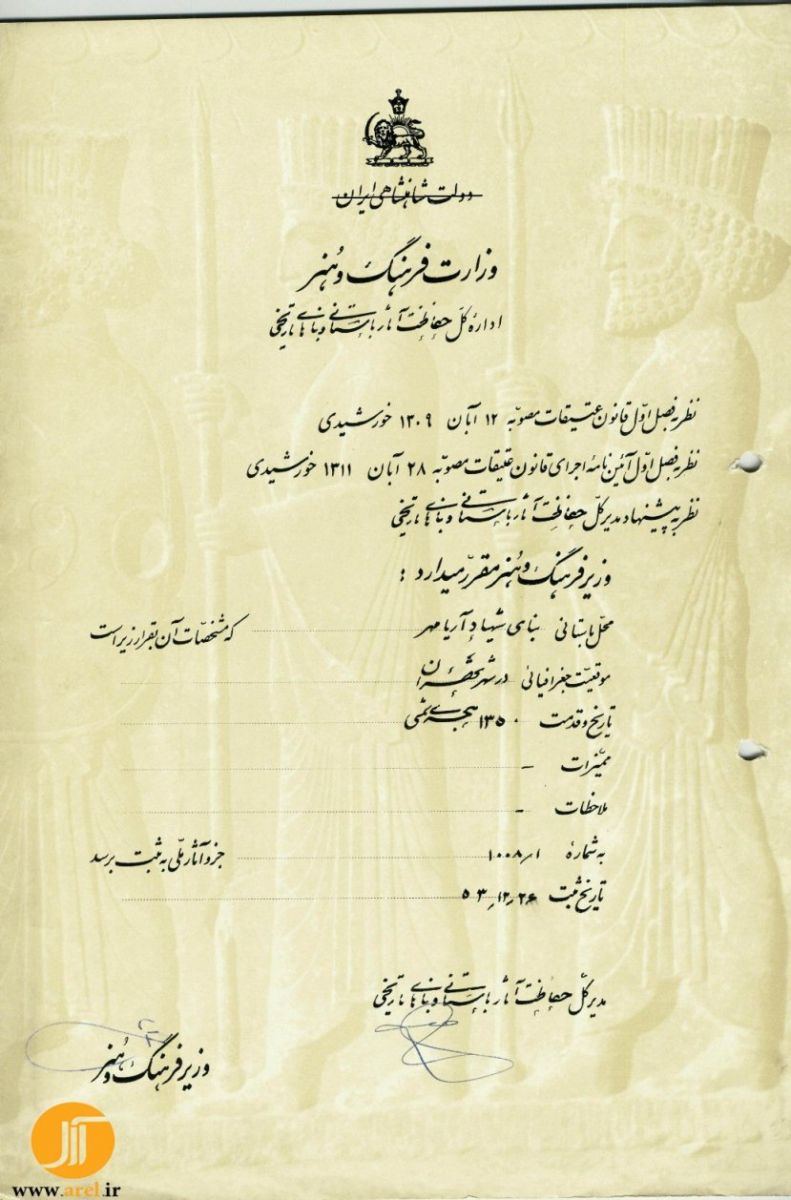 دولت شاهنشاهی ایران
وزارت فرهنگ و هنر
اداره کل حفاظت آثار باستانی و بناهای تاریخی
نظر به فصل اوّل قانون عتیقات مصوّبه ۱۲ آبان ۱۳۰۹ خورشیدی
نظر به فصل اوّل آئین نامهٔ اجرای قانون عتیقات مصوّبه ۲۸ آبان ۱۳۱۱ خورشیدی
نظر به پیشنهاد مدیر کلّ حفاظت آثار باستانی و بناهای تاریخی
وزیر فرهنگ و هنر مقرّر میدارد :
محلّ باستانی بنای شهیاد آریامهر که مشخصّات آن بقرار زیر است
موقعیّت جغرافیائی در شهر تهران
تاریخ و قدمت ۱۳۵۰ هجری شمسی
ممیّزات -
ملاحظات -
به شمارهٔ ۱۰۰۸٫۱ جزو آثار ملّی به ثبت برسد
تاریخ ثبت ۵۳٫۱۲٫۲۶
مدیر کلّ حفاظت آثار باستانی و بناهای تاریخی
وزیر فرهنگ و هنر
آرل
www.arel.ir